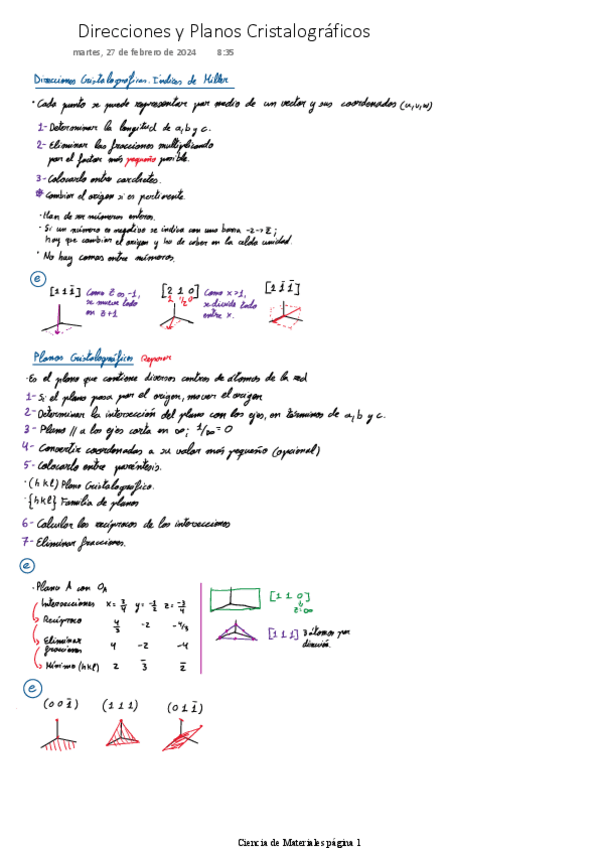 Direcciones y Planos Cristalográficos
martes, 27 de febrero de 2024 8:35
Direcciones Cristalográficas. Índices de Miller
· Cada punto se puede representar por medio de un vector y sus coordenadas (u,v,w)
1- Determinar la longitud de a, b y c.
2- Eliminar las fracciones multiplicando
por el factor más pequeño posible.
3- Colocarlo entre corchetes.
* Cambiar el origen si es pertinente.
· Han de ser números enteros.
· Si un número es negativo se indica con una barra -2→2̄;
hay que cambiar el origen y ha de caber en la celda unidad.
· No hay comas entre números.
e
[1 1 1̄] Como z es -1,
se mueve todo
en z+1
[2 1 0] Como x>1,
1 1/2 0 se divide todo
entre x.
[1 1̄ 1̄]
Planos Cristalográficos Repasar
· Es el plano que contiene diversos centros de átomos de la red
1- Si el plano pasa por el origen, mover el origen
2- Determinar la intersección del plano con los ejes, en términos de a, b y c.
3- Plano // a los ejes corta en ∞; 1/∞ = 0
4- Convertir coordenadas a su valor más pequeño (opcional)
5- Colocarlo entre paréntesis.
· (h k l) Plano Cristalográfico.
· {h k l} Familia de planos
6- Calcular los recíprocos de los intersecciones
7- Eliminar fracciones.
e
· Plano A con OA
Intersecciones x= 3/4 y= -1/2 z= -3/4
Recíproco 4/3 -2 -4/3
Eliminar
fracciones 4 -2 -4
Mínimo (hkl) 2 3̄ 2̄
[1 1 0]
z=∞
[1 1 1] 3 átomos por
dirección.
e
(0 0 1̄) (1 1 1) (0 1 1̄)
Ciencia de Materiales página 1